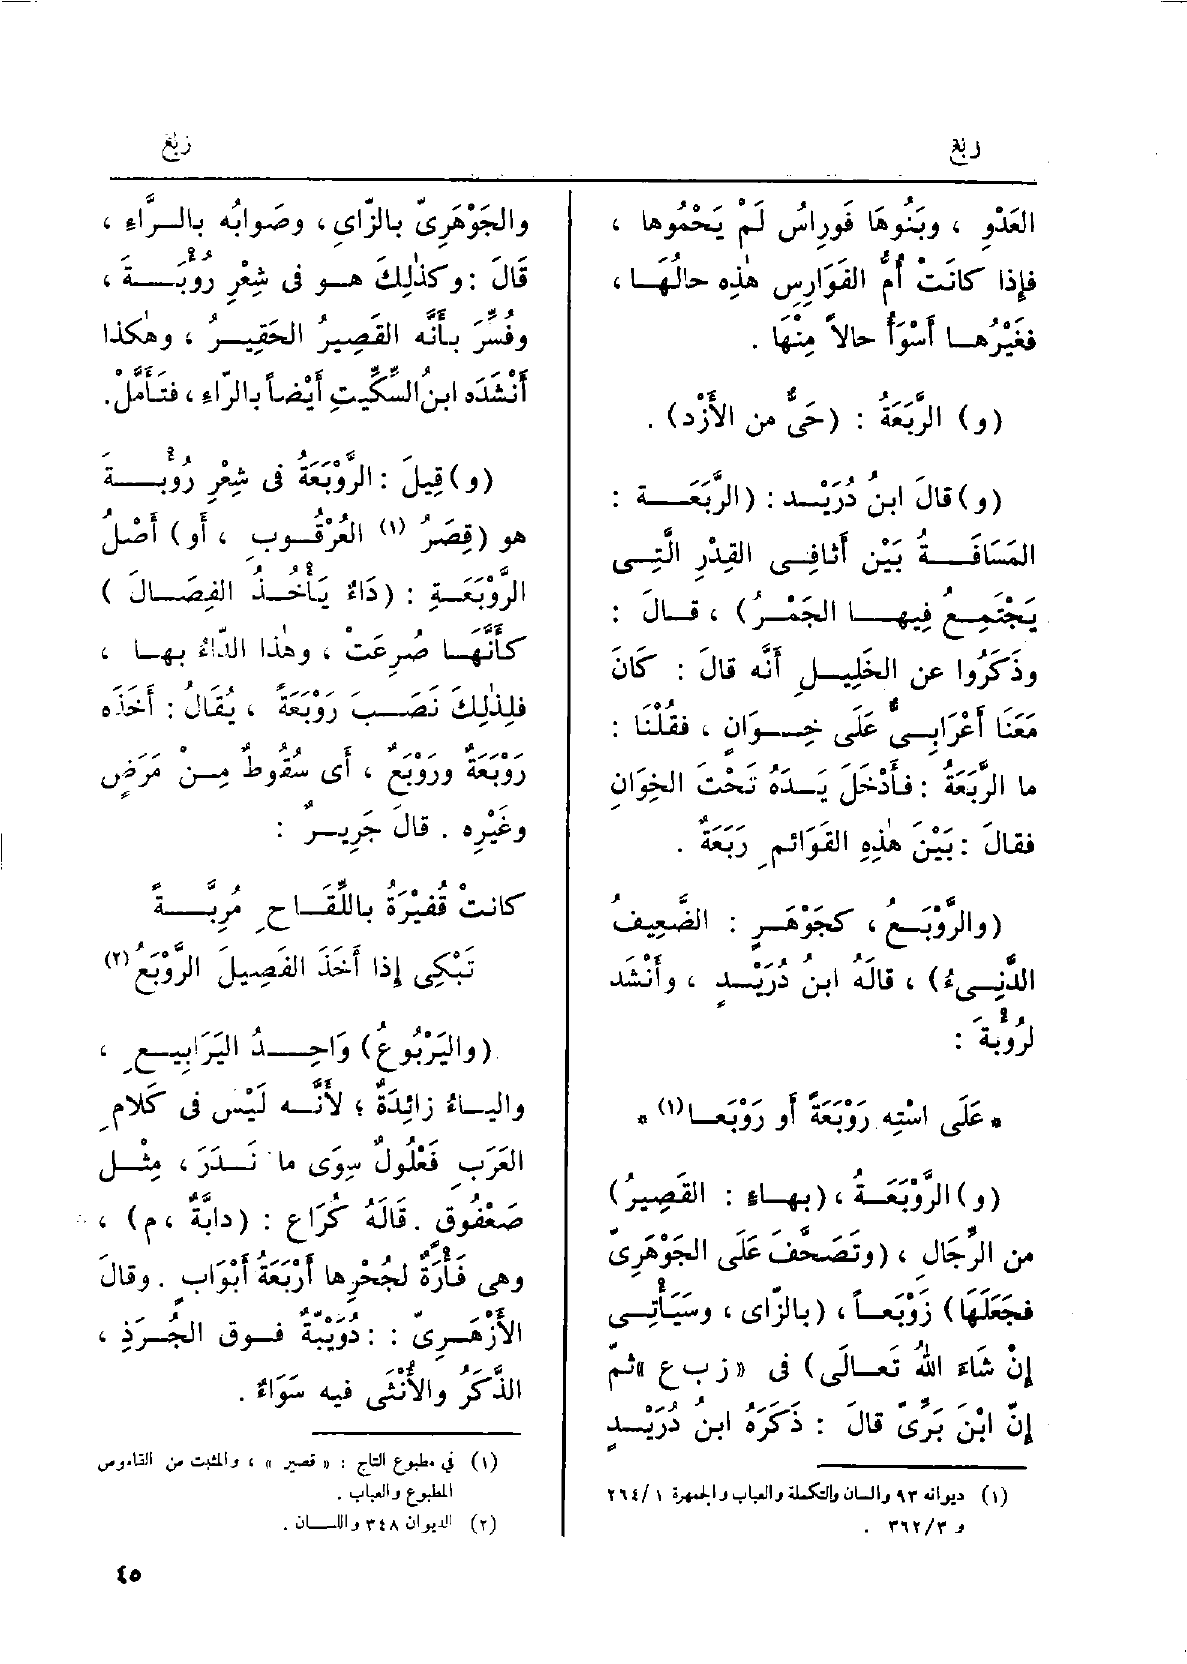 ربع
ربع
العَدْوِ ، وبَنُوهَا فَوراسُ لَمْ يَحْمُوها ،
فإِذا كانَتْ أُمُّ الفَوَارِسِ هٰذه حالُهَـا ،
فغَيْرُهـا أَسْوَأُ حالاً مِنْهَا .
(و) الرَّبَعَةُ : (حَىٌّ من الأَزْد) .
(و) قالَ ابنُ دُرَيْـد : (الرَّبَعَـة :
المَسَافَـةُ بَيْن أَثافِـى القِدْرِ الَّتِـى
يَجْتَمِـعُ فِيهـا الجَمْـرُ) ، قـالَ :
وذَكَرُوا عن الخَلِيـلِ أَنَّه قالَ : كَانَ
مَعَنَا أَعْرَابِـىٌّ عَلَى خِـوَانٍ ، فقُلْنَا :
ما الرَّبَعَةُ : فـأَدْخَلَ يَـدَهُ تَحْتَ الخِوَانِ
فقالَ : بَيْنَ هٰذِهِ القَوَائمِ رَبَعَةٌ .
(والرَّوْبَـعُ ، كجَوْهَـرٍ : الضَّعِيفُ
الدَّنِـىءُ) ، قالَهُ ابنُ دُرَيْـدٍ ، وأَنْشَد
لرُؤْبةَ :
* عَلَى اسْتِه رَوْبَعَةً أَو رَوْبَعَـا (١) *
(و) الرَّوْبَعَـةُ ، (بهـاءٍ : القَصِيرُ)
من الرِّجَالِ ، (وتَصَحَّفَ عَلَى الجَوْهَرِىّ
فجَعَلَهَا) زَوْبَعـاً ، (بالزّاى ، وسَيَأْتِـى
إِنْ شَاءَ اللهُ تَعـالَى) فى « ز ب ع » ثمّ
إِنّ ابْنَ بَرِّىّ قالَ : ذَكَرَهُ ابنُ دُرَيْـدٍ
(١) ديوانه ٩٣ والسان والتكملة والعباب والجمهرة ١ /٢٦٤
و ٣ /٣٦٢ .
والجَوْهَرِىّ بالزّاىِ ، وصَوابُه بالـرَّاءِ ،
قَالَ : وكذٰلِكَ هـو فى شِعْرِ رُؤْبَـةَ ،
وفُسِّرَ بـأَنَّه القَصِيرُ الحَقِيـرُ ، وهٰكذا
أَنْشَدَه ابنُ السِّكِّيتِ أَيْضاً بالرّاءِ ، فتَأَمَّلْ.
(و) قِيلَ : الرَّوْبَعَةُ فى شِعْرِ رُؤْبـةَ
هو (قِصَرُ (١) العُرْقُـوبِ ، أَو) أَصْلُ
الرَّوْبَعَـةِ : (دَاءٌ يَأْخُـذُ الفِصَـالَ )
كـأَنَّهَـا صُرِعَتْ ، وهٰذا الدّاءُ بهـا ،
فلِذٰلِكَ نَصَـبَ رَوْبَعَةً ، يُقَالُ : أَخَذَه
رَوْبَعَةٌ ورَوْبَعٌ ، أَى سُقُوطٌ مِـنْ مَرَضٍ
وغَيْرِه . قالَ جَرِيـرٌ :
كانتْ قُفَيْرَةُ باللِّقَـاحِ مُرِبَّـةً
تَبْكِى إِذا أَخَذَ الفَصِيلَ الرَّوْبَعُ (٢)
(واليَرْبُوعُ) وَاحِـدُ اليَرَابِيـعِ ،
واليـاءُ زائِدَةٌ ؛ لأَنَّـه لَيْسَ فى كَلامِ
العَرَبِ فَعْلُولٌ سِوَى ما نَـدَرَ ، مِثْـل
صَعْفُوقٍ . قَالَهُ كُرَاع : (دابَّةٌ ، م) ،
وهى فَأْرَةٌ لجُحْرِها أَرْبَعَةُ أَبْوَابٍ . وقالَ
الأَزْهَـرِىّ : : دُوَيْبَّةٌ فـوق الجُـرَذِ ،
الذَّكَرُ والأُنْثَى فيه سَوَاءٌ .
(١) في مطبوع التاج : « قصير » ، والمثبت من القاموس
المطبوع والعباب .
(٢) الديوان ٣٤٨ واللـسان .
٤٥